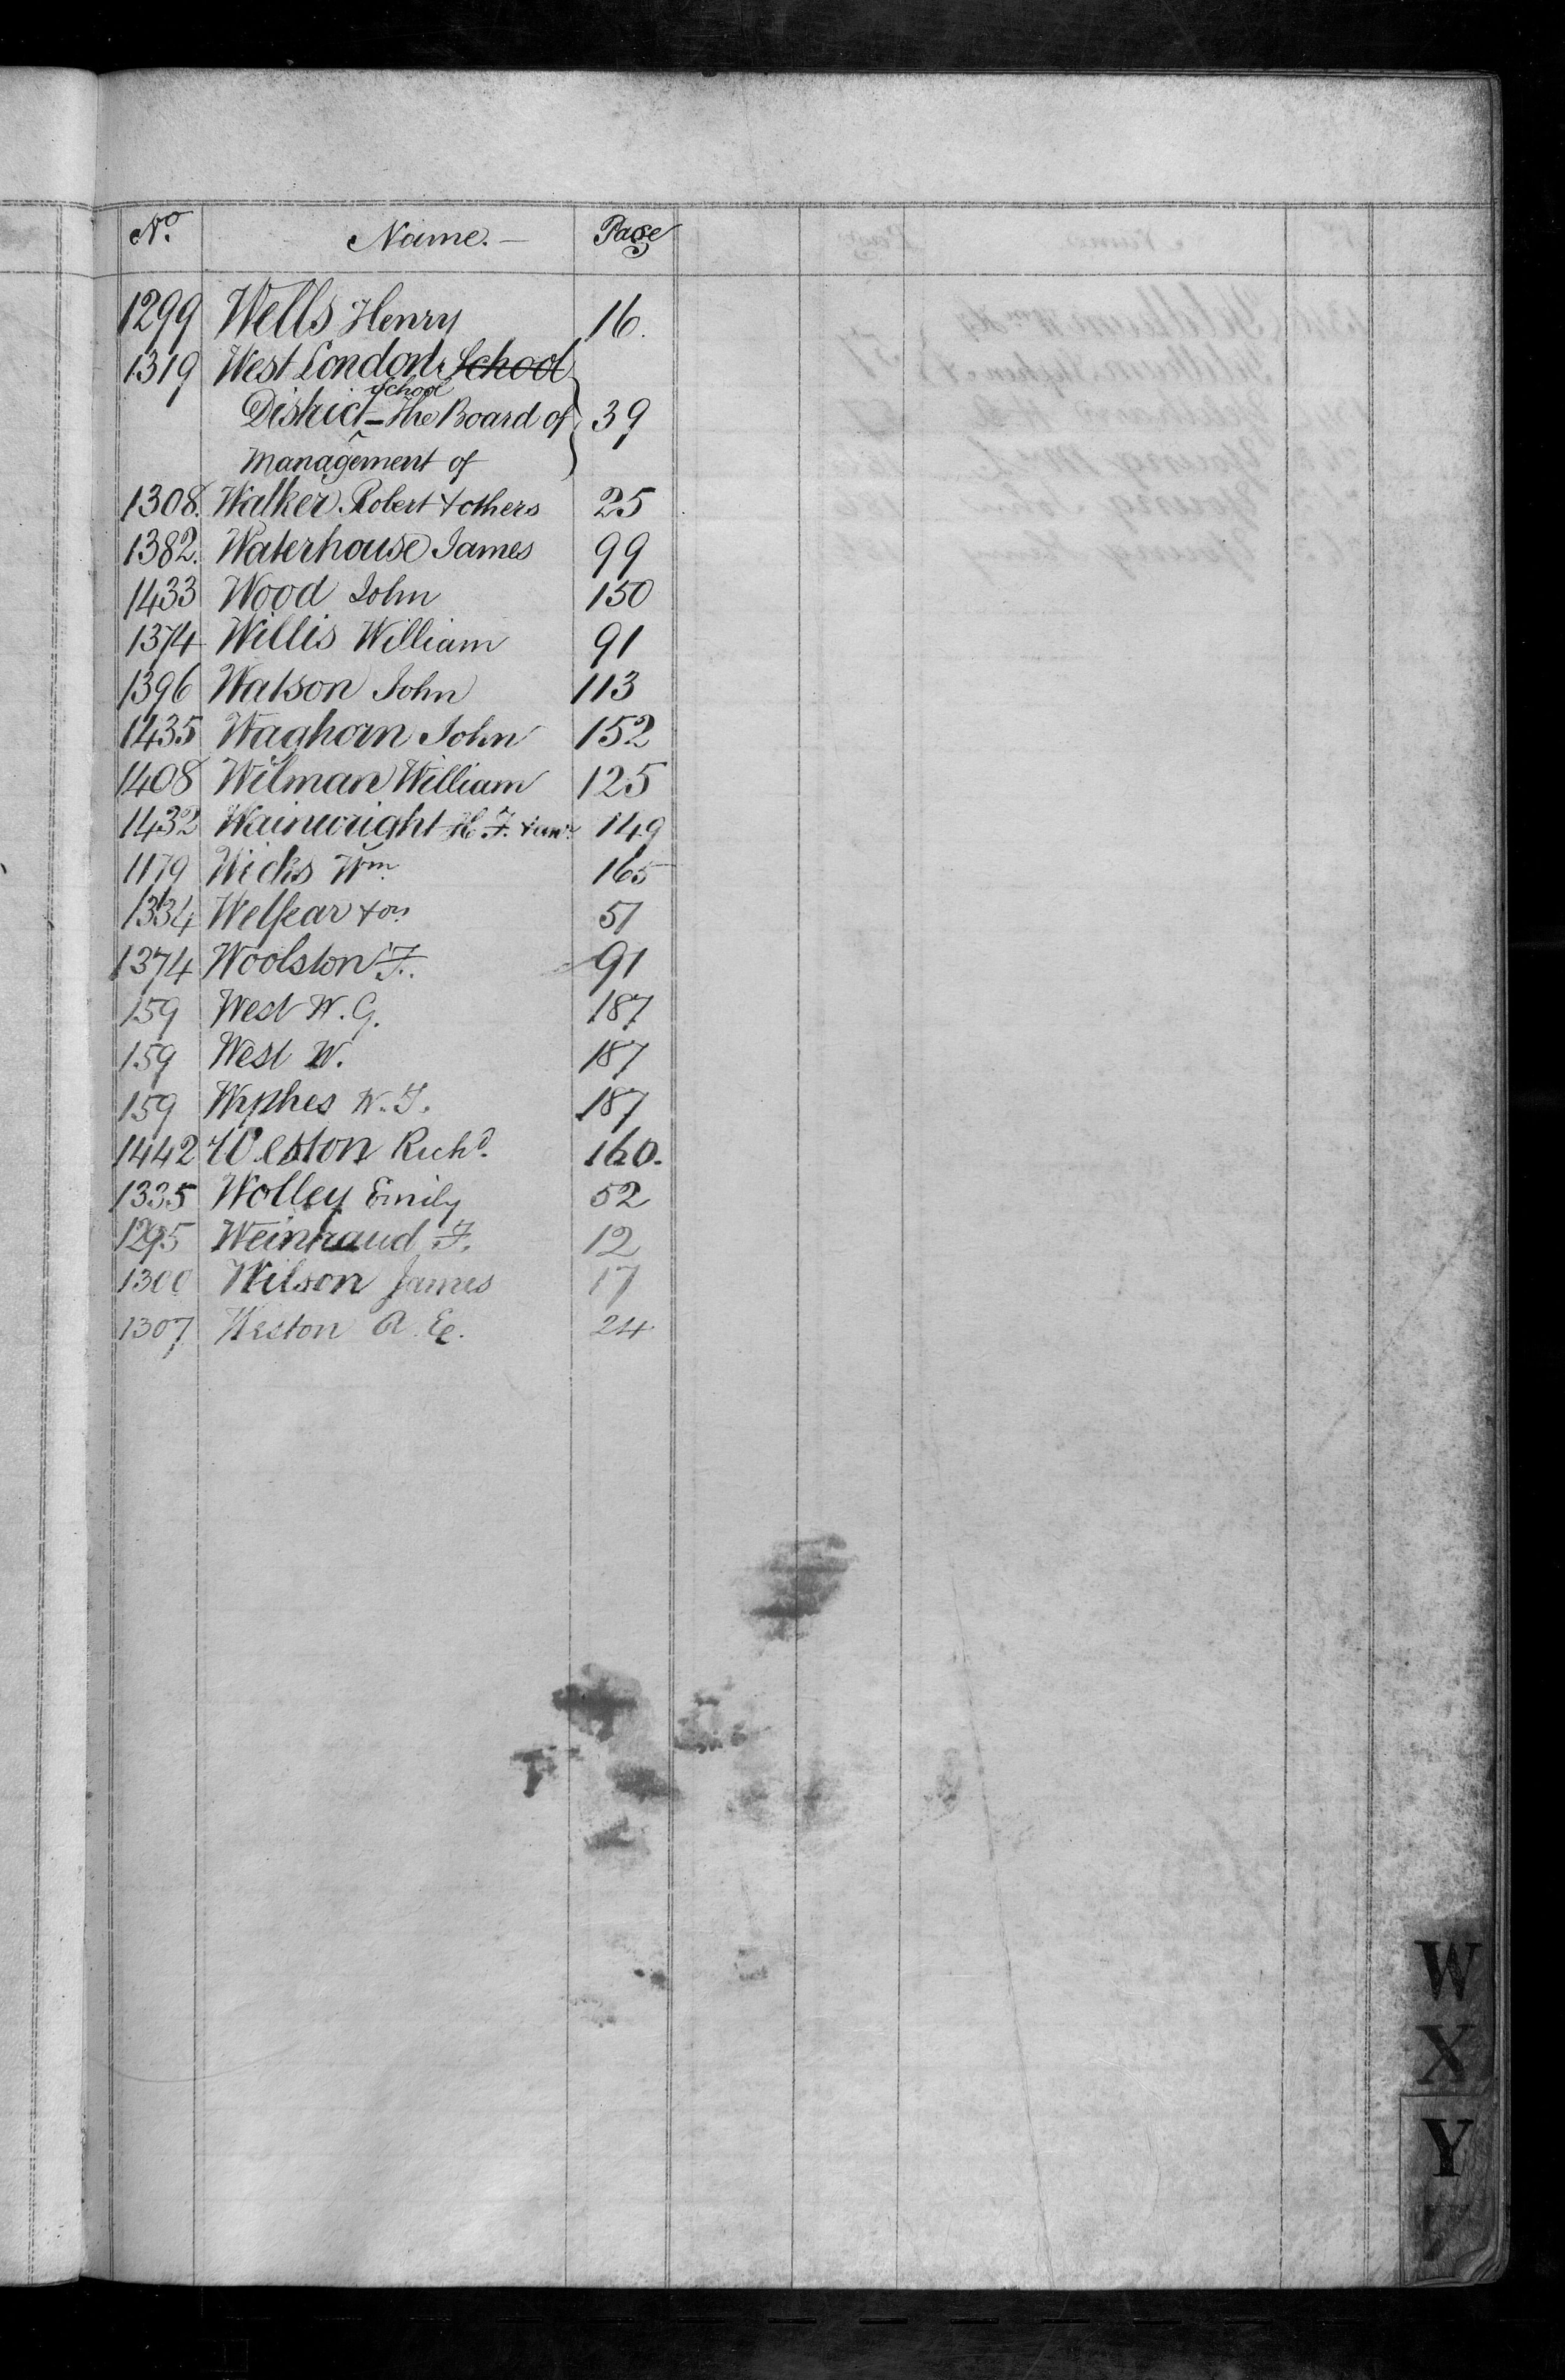 No. Name. — Page
1299 Wells Henry 16.
1319 West London School
School
District – The Board of 39
Management of
1308. Walker Robert & others 25
1382. Waterhouse James 99
1433 Wood John 150
1374 Willis William 91
1396 Watson John 113
1435 Waghorn John 152
1408 Wilman William 125
1432 Wainwright H. F. 149
1179 Wicks Wm 165
1334 & ors 51
1374 Woolston F. 91
159 West W. G. 187
159 West W. 187
159 W. 187
1442 Weston Richd. 160.
1335 Wolley Emily 52
1295 Weintraud F. 12
1300 Wilson James 17
1307 Weston A. E. 24
W
X
Y